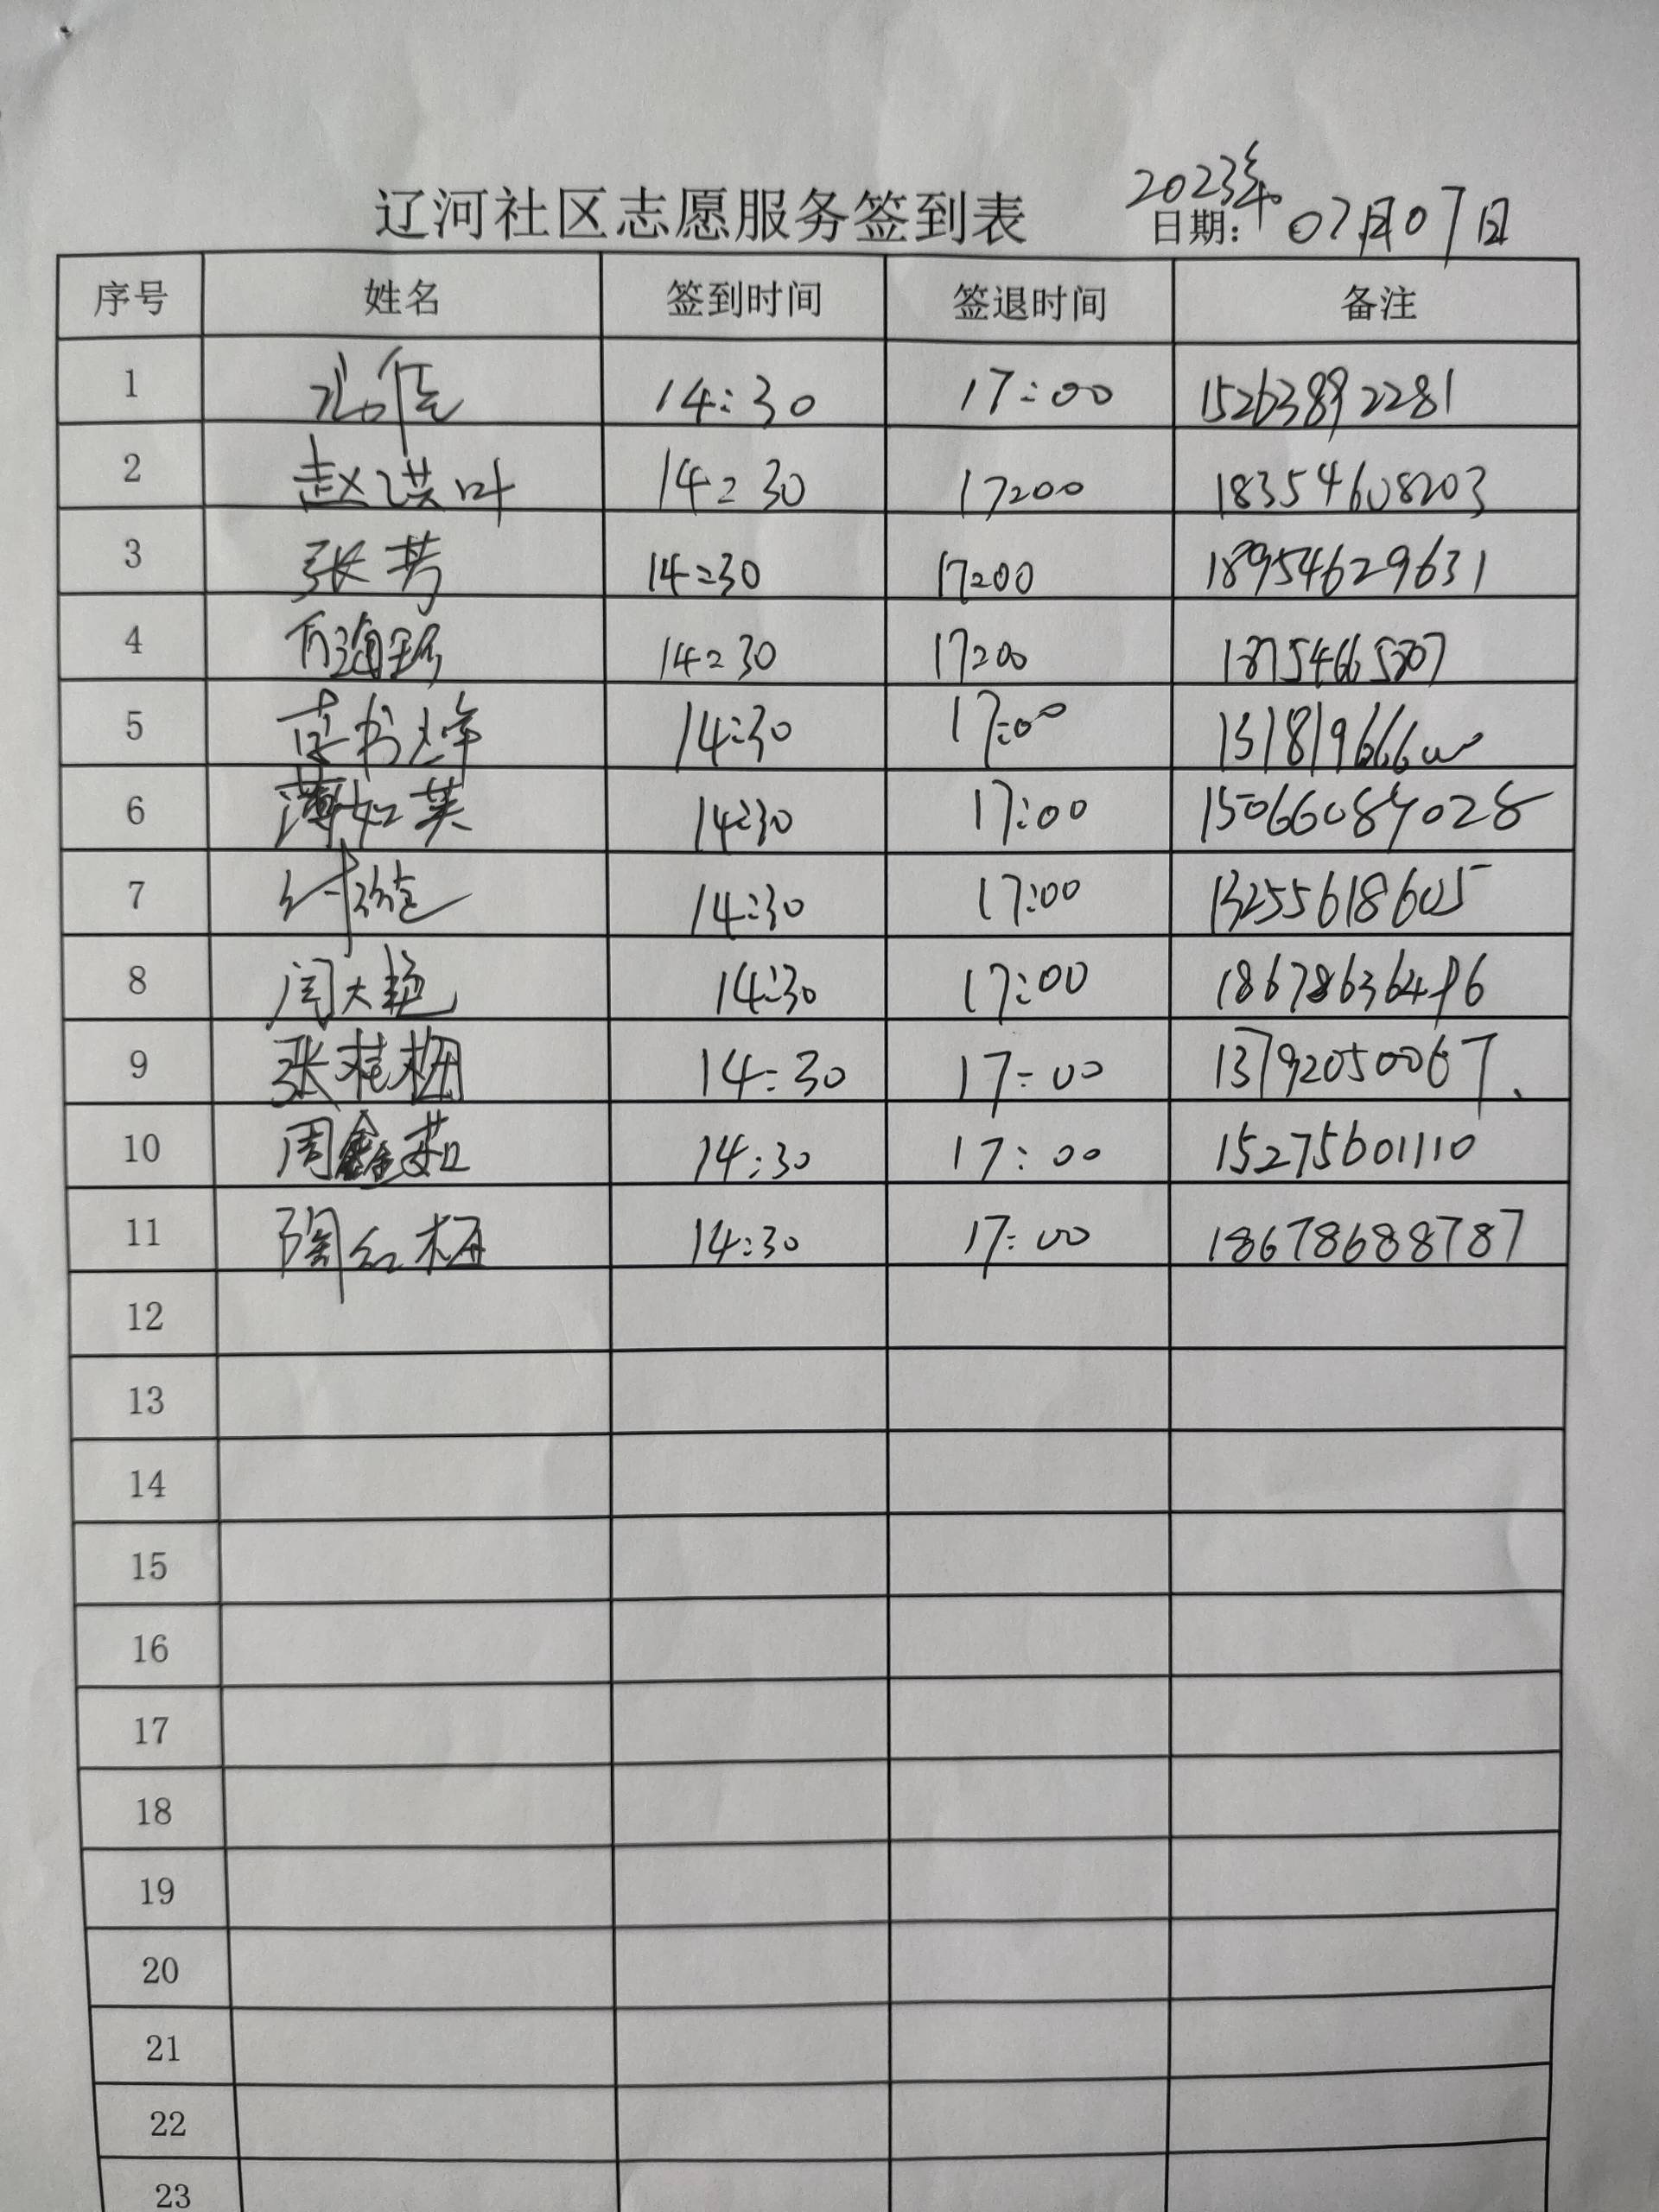 辽河社区志愿服务签到表 2023年
日期: 07月07日
序号 姓名 签到时间 签退时间 备注
1 14:30 17:00 15263892281
2 赵洪叶 14:30 17:00 18354608203
3 张芳 14:30 17:00 18954629631
4 14:30 17:00 18754665807
5 14:30 17:00 13181966600
6 薄如英 14:30 17:00 15066084028
7 付 14:30 17:00 13255618605
8 闫大艳 14:30 17:00
9 张桂梅 14:30 17:00 13792050067.
10 周鑫茹 14:30 17:00 15275601110
11 陶红梅 14:30 17:00 18678688787
12
13
14
15
16
17
18
19
20
21
22
23